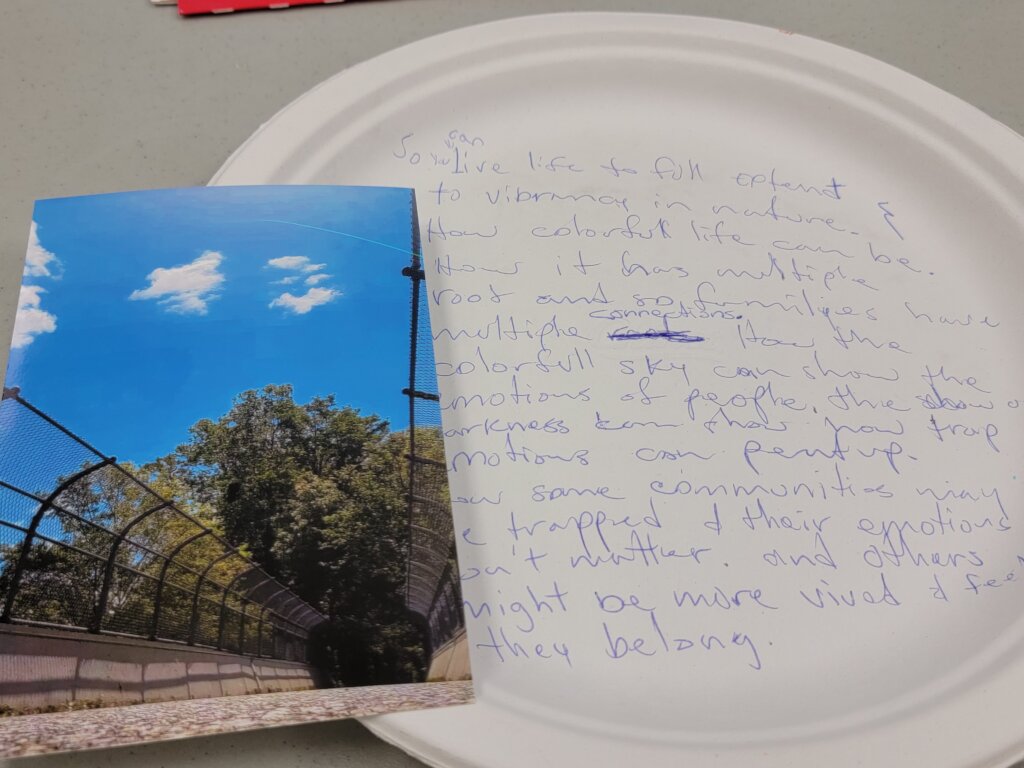 can
So live life to full extent
to vibrancy in nature. &
How colorfull life can be.
How it has multiple
root and so families have
connections.
multiple How the
colorfull sky can show the
motions of people. the show o
arkness can show how trap
motions can pent up.
ow some communities may
e trapped & their emotions
on't mutter. and others
might be more vived & fee
they belong.